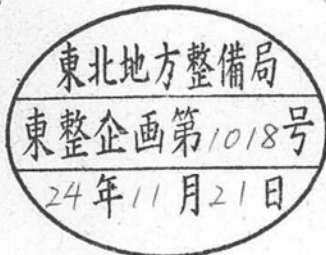 東北地方整備局
東整企画第1018号
24年11月21日